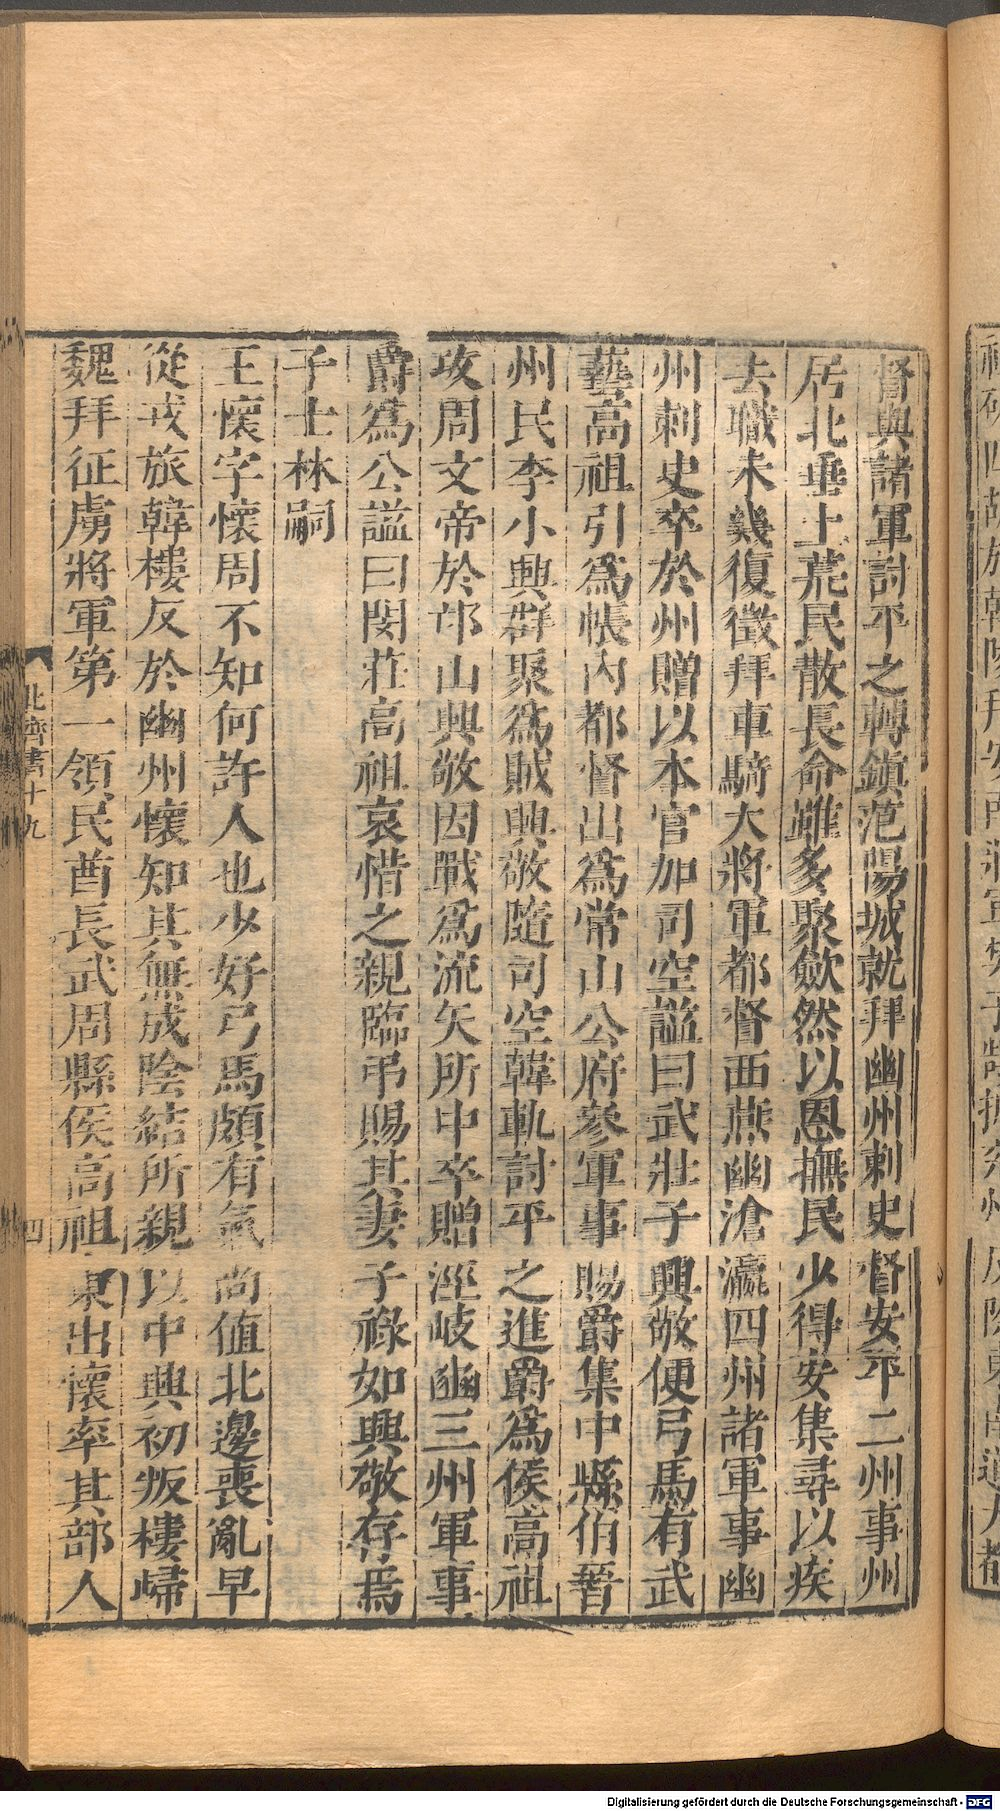 督與諸軍討平之轉鎮范陽城就拜幽州刺史督安平二州事州
居北垂土荒民散長命雖多聚歛然以恩撫民少得安集尋以疾
去職未幾復徵拜車騎大將軍都督西燕幽滄瀛四州諸軍事幽
州刺史卒於州贈以本官加司空謚曰武壯子興敬便弓馬有武
藝高祖引爲帳內都督出爲常山公府參軍事賜爵集中縣伯晉
州民李小興群聚爲賊興敬隨司空韓軌討平之進爵爲侯高祖
攻周文帝於邙山興敬因戰爲流矢所中卒贈涇岐豳三州軍事
爵爲公謚曰閔莊高祖哀惜之親臨弔賜其妻子祿如興敬存焉
子士林嗣
王懷字懷周不知何許人也少好弓馬頗有氣尚值北邊喪亂早
從戎旅韓樓反於幽州懷知其無成陰結所親以中興初叛樓歸
魏拜征虜將軍第一領民酋長武周縣侯高祖東出懷率其部人
北齊書十九
四
Digitalisierung gefördert durch die Deutsche Forschungsgemeinschaft - DFG